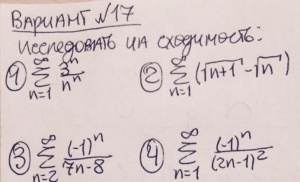 Вариант №17
Исследовать на сходимость:
1) ∑_{n=1}^{∞} 3^n / n^n
2) ∑_{n=1}^{∞} (√(n+1) - √n)
3) ∑_{n=2}^{∞} (-1)^n / (7n-8)
4) ∑_{n=1}^{∞} (-1)^n / (2n-1)^2